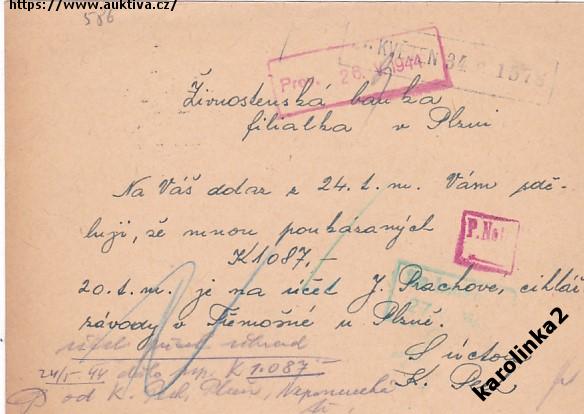 https://www.auktiva.cz/
586
KVĚTEN 34 1578
26. V. 1944
Živnostenská banka
filialka v Plzni
Na Váš dotaz z 24. t. m. Vám sdě-
luji, že mnou poukázaných
K 1087,-
20. t. m. je na účet J. Prachove, cihlář.
závody v Třemošné u Plzně.
S úctou
K.
P. No
27.
24/5-44 K 1.087-
od K. Plzeň,
karolinka2